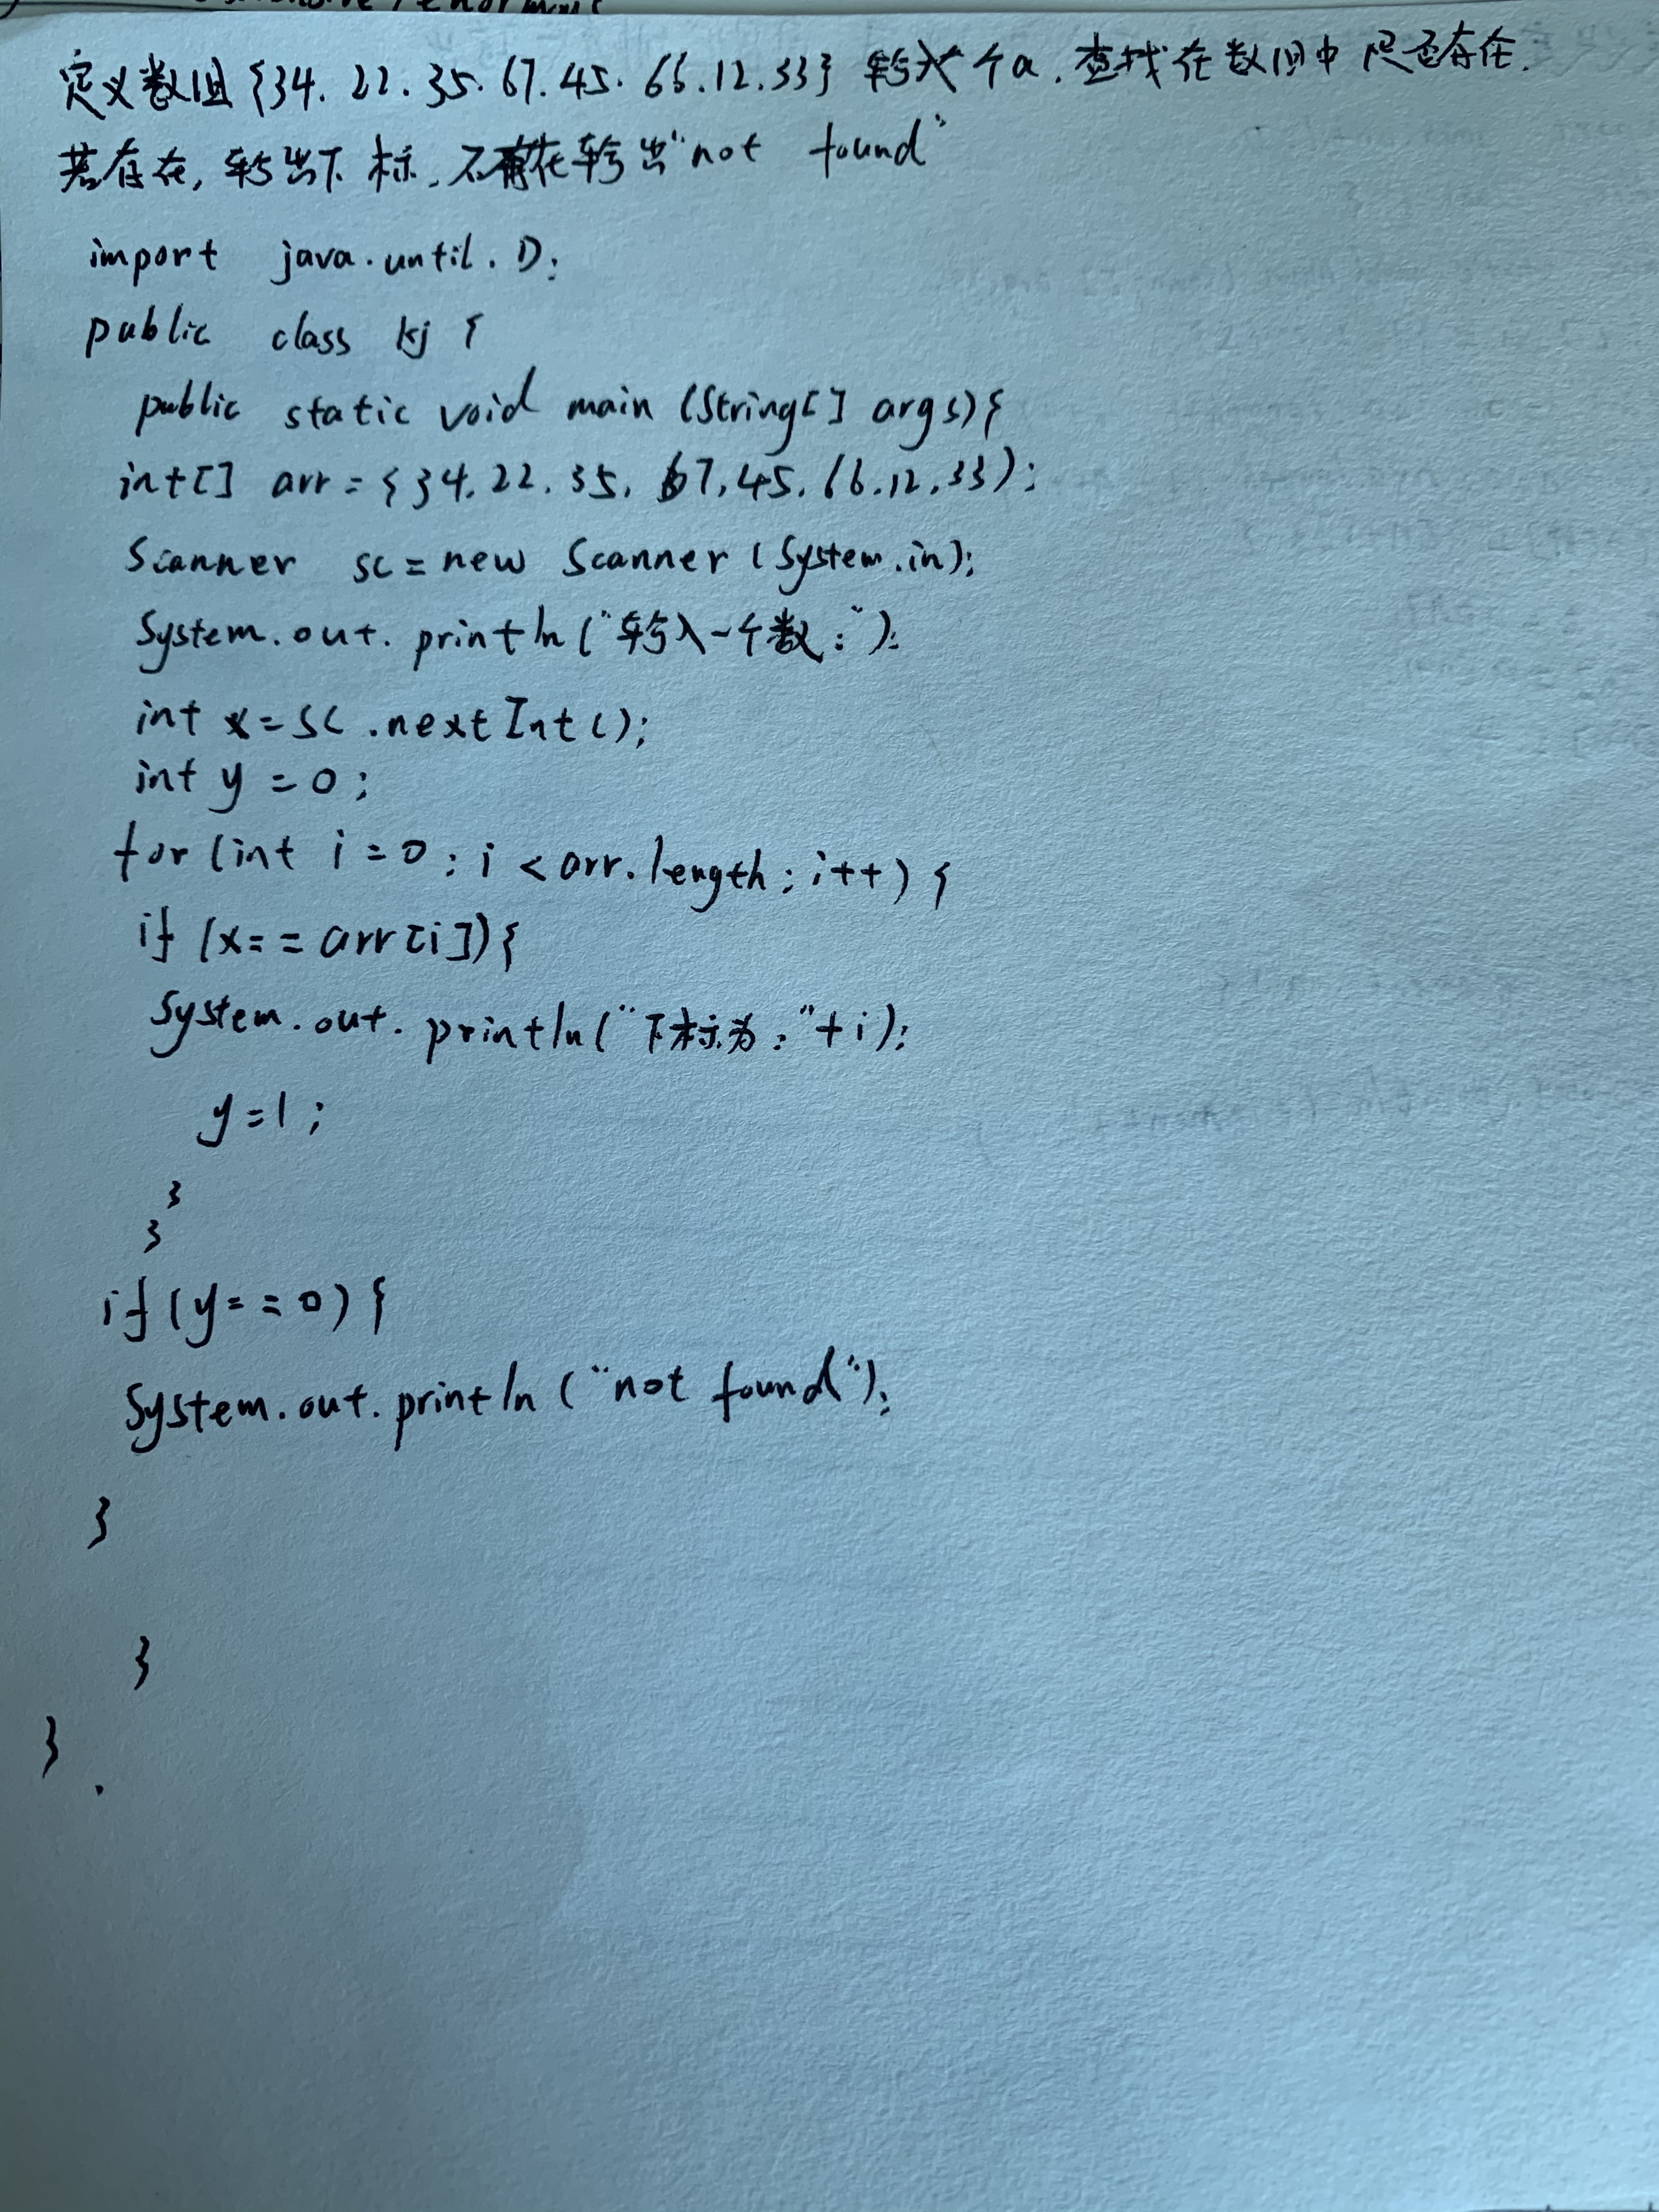 定义数组{34.22.35.67.45.66.12.33} 输入一个a.查找在数组中是否存在.
若存在,输出下标.不存在输出"not found"
import java.until.D;
public class kj {
public static void main (String[] args){
int[] arr={34.22.35.67.45.66.12.33);
Scanner sc=new Scanner (System.in);
System.out.println("输入一个数:");
int x=sc.nextInt();
int y=0;
for(int i=0;i<arr.length;i++){
if (x==arr[i]){
System.out.println("下标为:"+i);
y=1;
}
}
if(y==0){
System.out.println("not found");
}
}
}